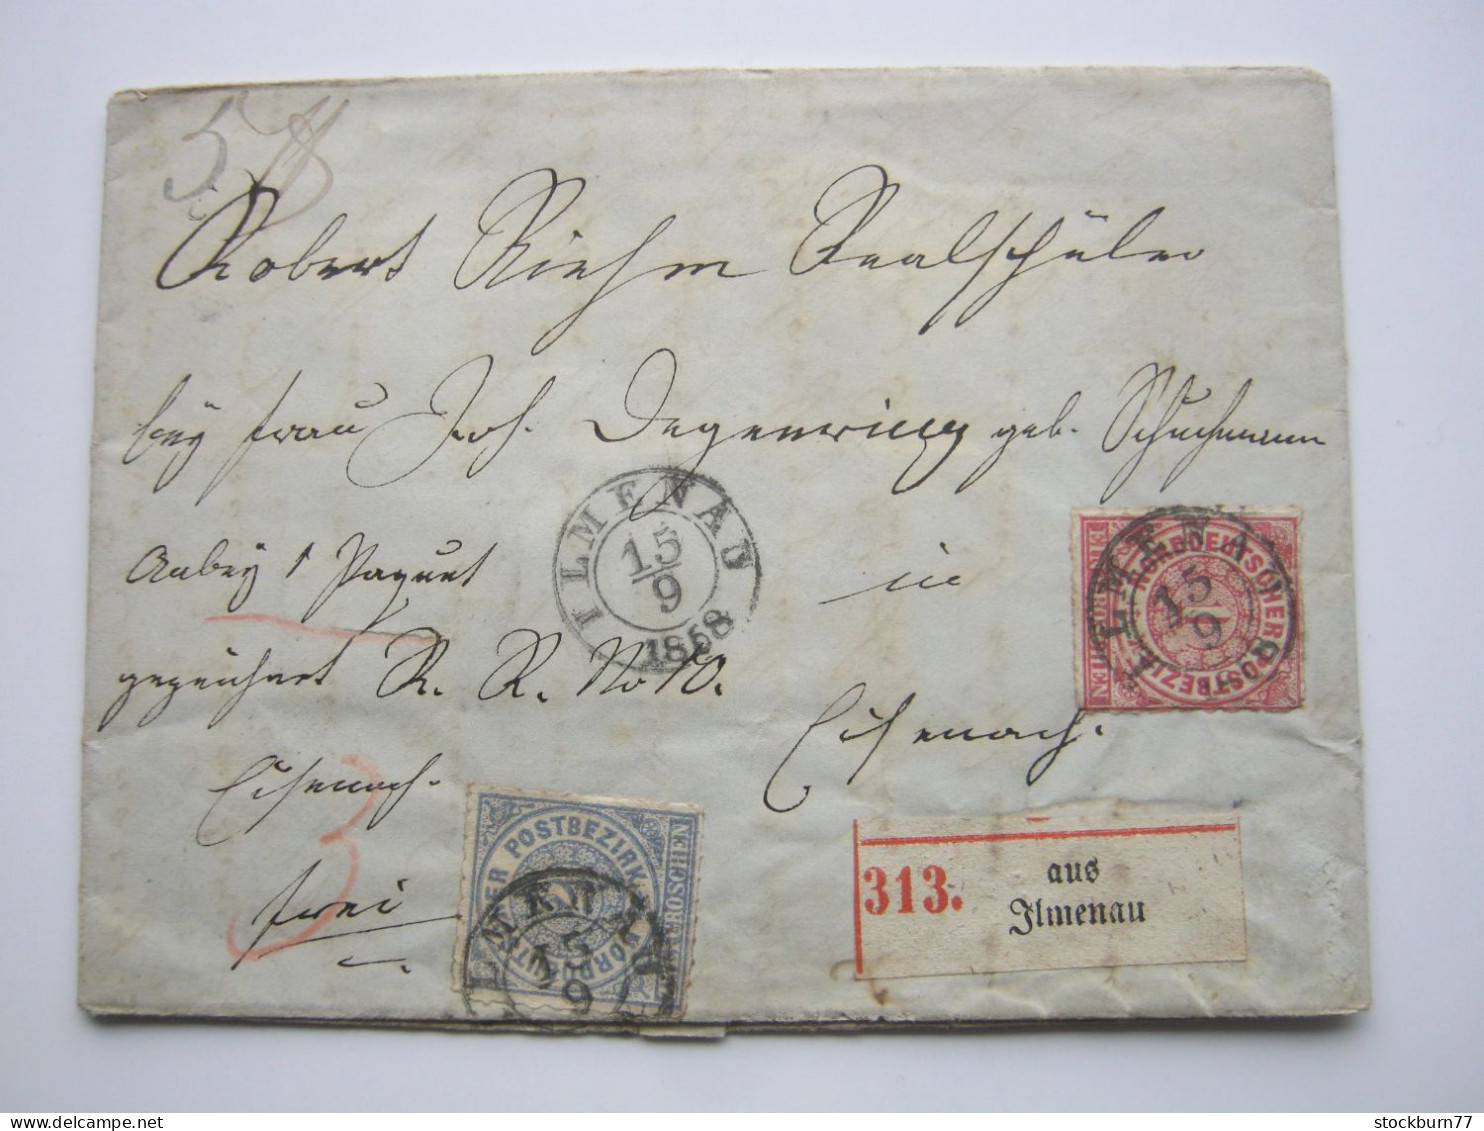 5 ℔
Robert Riehm Realschüler
bey Frau Joh. Degenring geb. Schuchmann
Anbey 1 Paquet in
gezeichnet R. R. No 10. Eisenach.
Eisenach.
frei
3
ILMENAU
15
9
1868
NORDDEUTSCHER POSTBEZIRK
EIN GROSCHEN
1
ILMENAU
15
9
NORDDEUTSCHER POSTBEZIRK
GROSCHEN
ILMENAU
15
9
313.
aus
Ilmenau
stockburn77